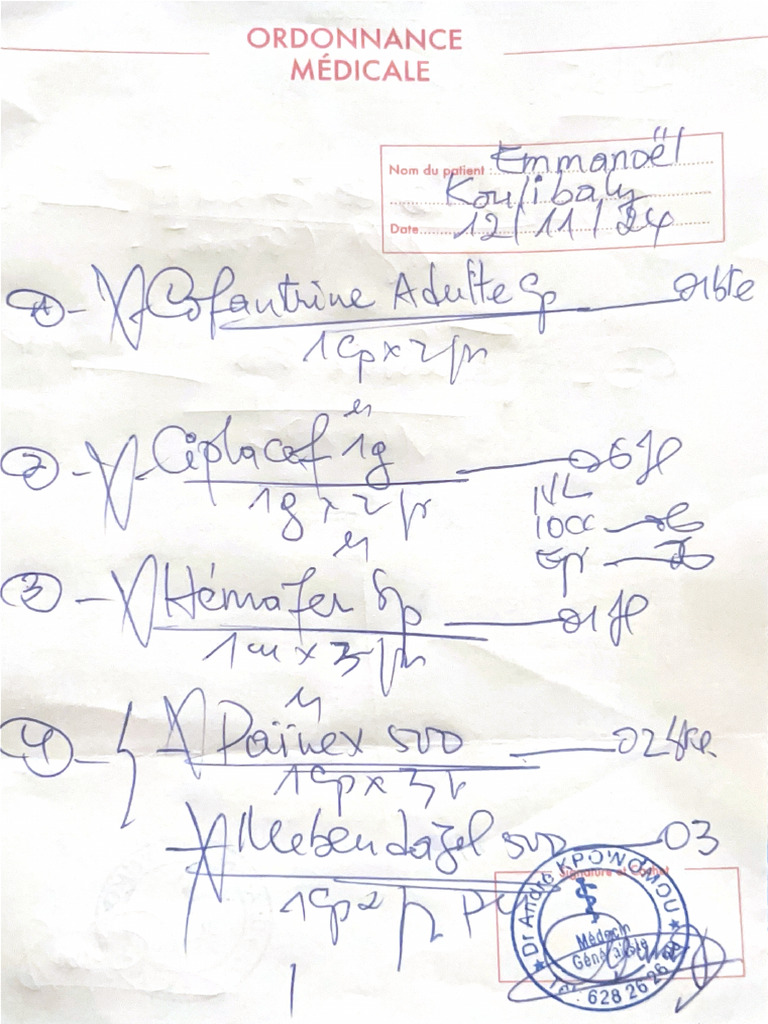 ORDONNANCE
MÉDICALE
Nom du patient : Emmanoël
Koulibaly
Date 12/11/24
1 - Cofantrine Adulte Cp 01bte
1Cp x 2/jr
2 - Ciplacef 1g 06 fl
1g x 2/jr
10CC
3 - Hémafer Sp 01 fl
1 x 3/jr
4 - Doïnex 500 02
1Cp x 3
Mebendazol 500 03
1Cp
Signature et Cachet
Dr André KPOWOMOU
Médecin
Généraliste
Tel: 628 26 26